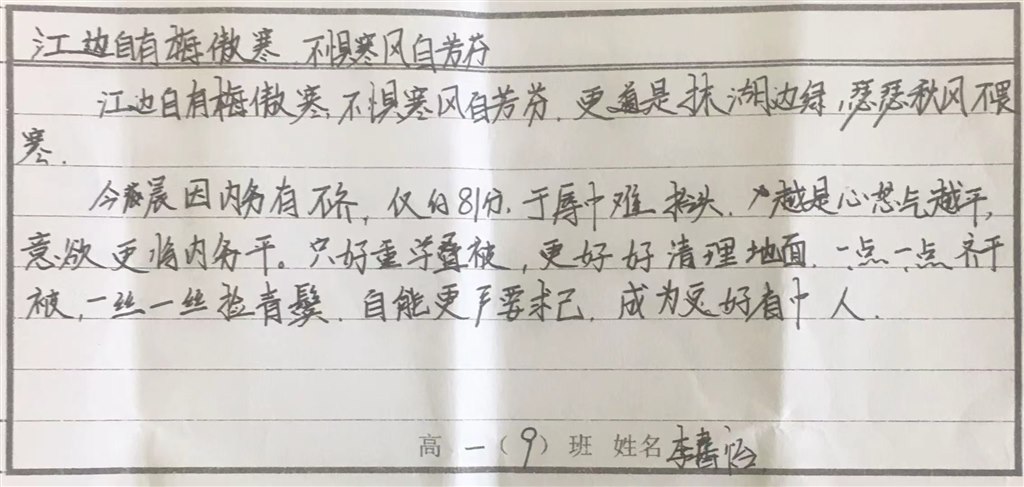 江边自有梅傲寒 不惧寒风自芳芬
江边自有梅傲寒,不惧寒风自芳芬.更是抹湖边绿,瑟瑟秋风不畏
寒.
今晨因内务有不齐,仅的81分.于辱中难抬头.越是心愁气越平,
意欲更将内务干。只好重学叠被,更好好清理地面.一点一点齐平
被,一丝一丝捡青鬓.自能更严要求己,成为更好自个人.
高一(9)班 姓名李 怡